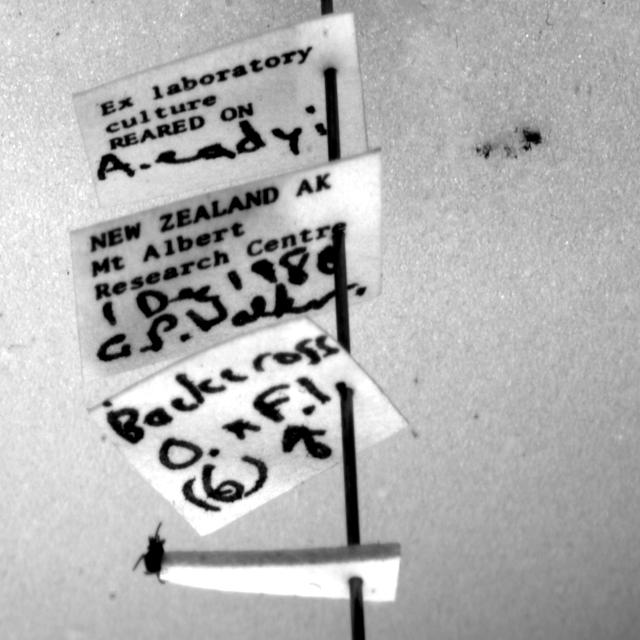 Ex laboratory
culture
REARED ON
A. eadyi
NEW ZEALAND AK
Mt Albert
Research Centre
1 Dec 1980
G.P. Walker
Backcross
O. x F.1
(6)